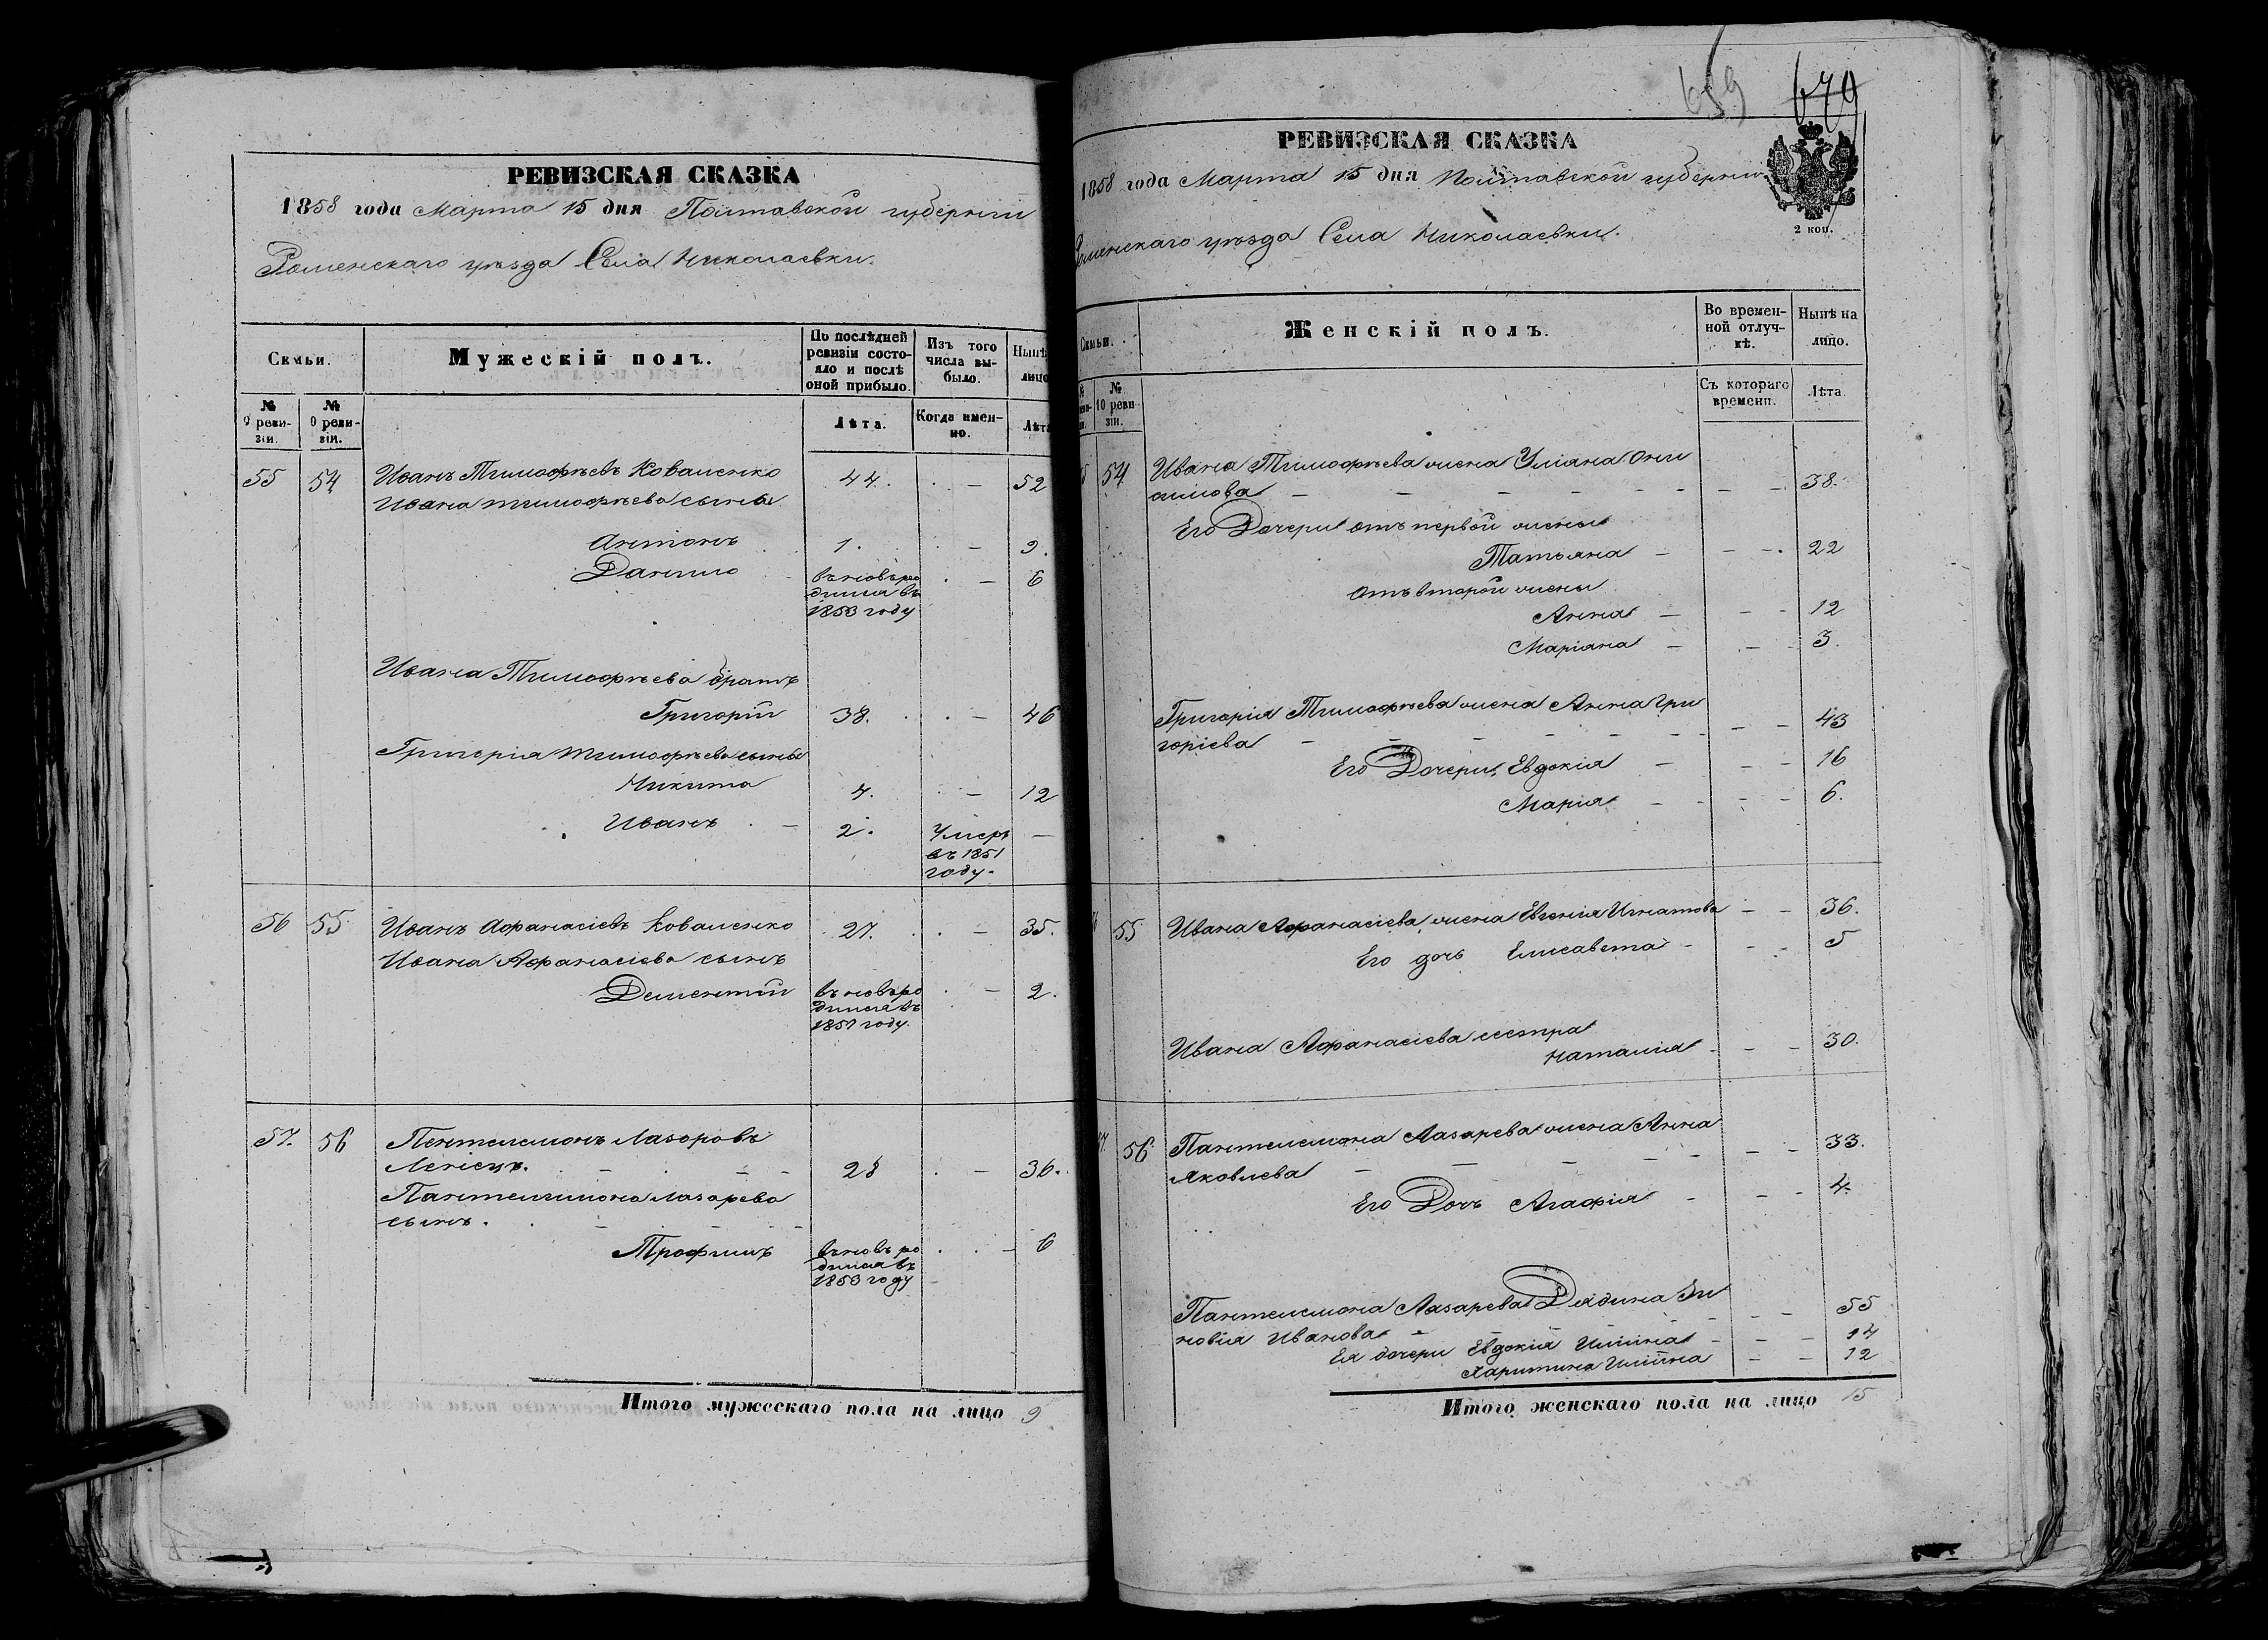 РЕВИЗСКАЯ СКАЗКА
1858 года Марта 15 дня Полтавской губерніи
Роменскаго уѣзда Села Николаевки.
Семьи.
Мужескій полъ.
По послѣдней ревизіи состояло и послѣ оной прибыло.
Изъ того числа выбыло.
Нынѣ
лицо
№ 9 ревизіи.
№ 0 ревизіи.
Лѣта.
Когда именно.
Лѣта
55 54 Иванъ Тимофѣевъ Коваленко 44. - 52
Ивана Тимофѣева сыны
Антонъ 1. - 9.
Данило вновь родился въ 1853 году - 6
Ивана Тимофѣева братъ
Григорій 38. - 46
Григорія Тимофѣева сыновья
Никита 4. - 12
Иванъ - 2. Умеръ въ 1851 году. -
56 55 Иванъ Афанасіевъ Коваленко 27. - 35.
Ивана Афанасіева сынъ
Дементій вновь родился въ 1857 году. - 2.
57. 56 Пантелеймонъ Лазоровъ
28 - 36.
Пантелеймона Лазарева
сынъ.
Трофимъ вновь родился въ 1853 году - 6
Итого мужескаго пола на лицо 9
659 679
РЕВИЗСКАЯ СКАЗКА
1858 года Марта 15 дня Полтавской губерніи
Роменскаго уѣзда Села Николаевки.
2 коп.
Семьи.
Женскій полъ.
Во временной отлучкѣ.
Нынѣ на лицо.
№ 10 ревизіи.
Съ котораго времени.
Лѣта.
54 Ивана Тимофѣева жена Уліана Они
симова - - - - - - - - 38.
Его Дочери отъ первой жены
Татьяна - - - 22
отъ второй жены
Анна - - - 12
Маріана - - - 3.
Григорія Тимофѣева жена Анна Гри
горіева - - - - - - - - 43
Его Дочери, Евдокія - - - 16
Марія - - - - 6.
55 Ивана Афанасіева жена Евгенія Игнатова - - 36.
Его дочь Елисавета - - - 5
Ивана Афанасіева сестра
Наталія - - - 30.
56 Пантелеймона Лазарева жена Анна
Яковлева - - - - - - - 33.
Его Дочь Агафія - - - 4.
Пантелеймона Лазарева Дядина Зи
новія Иванова - - - - 55
Ея дочери Евдокія Иліина - - - 14
Харитина Иліина - - 12
Итого женскаго пола на лицо 15